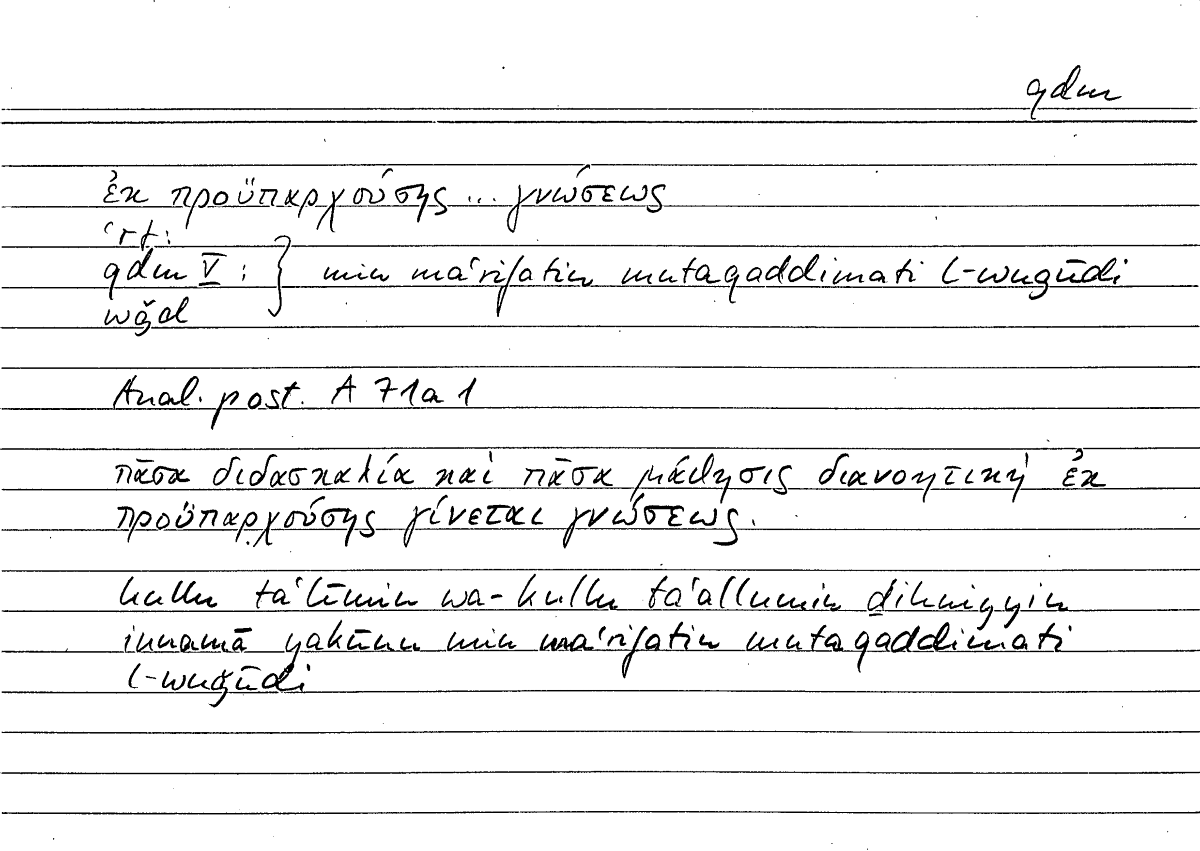 qdm
ἐκ προϋπαρχούσης ... γνώσεως
ʿrf:
qdm V : } min maʿrifatin mutaqaddimati l-wuǧūdi
wǧd
Anal. post. A 71a1
πᾶσα διδασκαλία καὶ πᾶσα μάθησις διανοητική ἐκ
προϋπαρχούσης γίνεται γνώσεως.
kullu taʿlīmin wa-kullu taʿallumin ḏihniyyin
innamā yakūnu min maʿrifatin mutaqaddimati
l-wuǧūdi